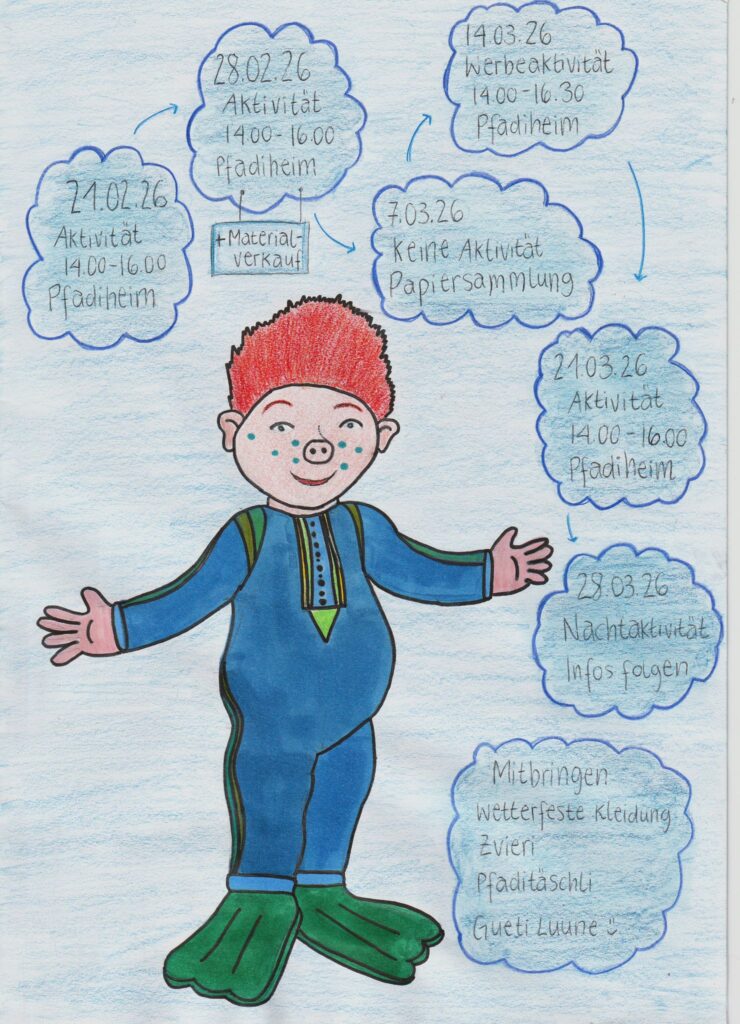 21.02.26
Aktivität
14.00-16.00
Pfadiheim
28.02.26
Aktivität
14.00-16.00
Pfadiheim
+Material-
verkauf
7.03.26
Keine Aktivität
Papiersammlung
14.03.26
Werbeaktivität
14.00-16.30
Pfadiheim
21.03.26
Aktivität
14.00-16.00
Pfadiheim
28.03.26
Nachtaktivität
Infos folgen
Mitbringen
Wetterfeste Kleidung
Zvieri
Pfaditäschli
Gueti Luune ☺